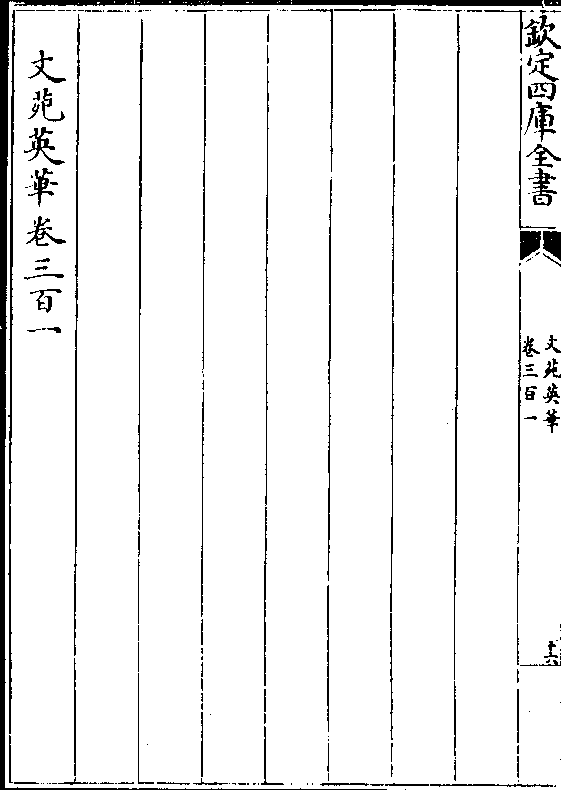 欽定四庫全書
文苑英華
卷三百一
十六
文苑英華卷三百一